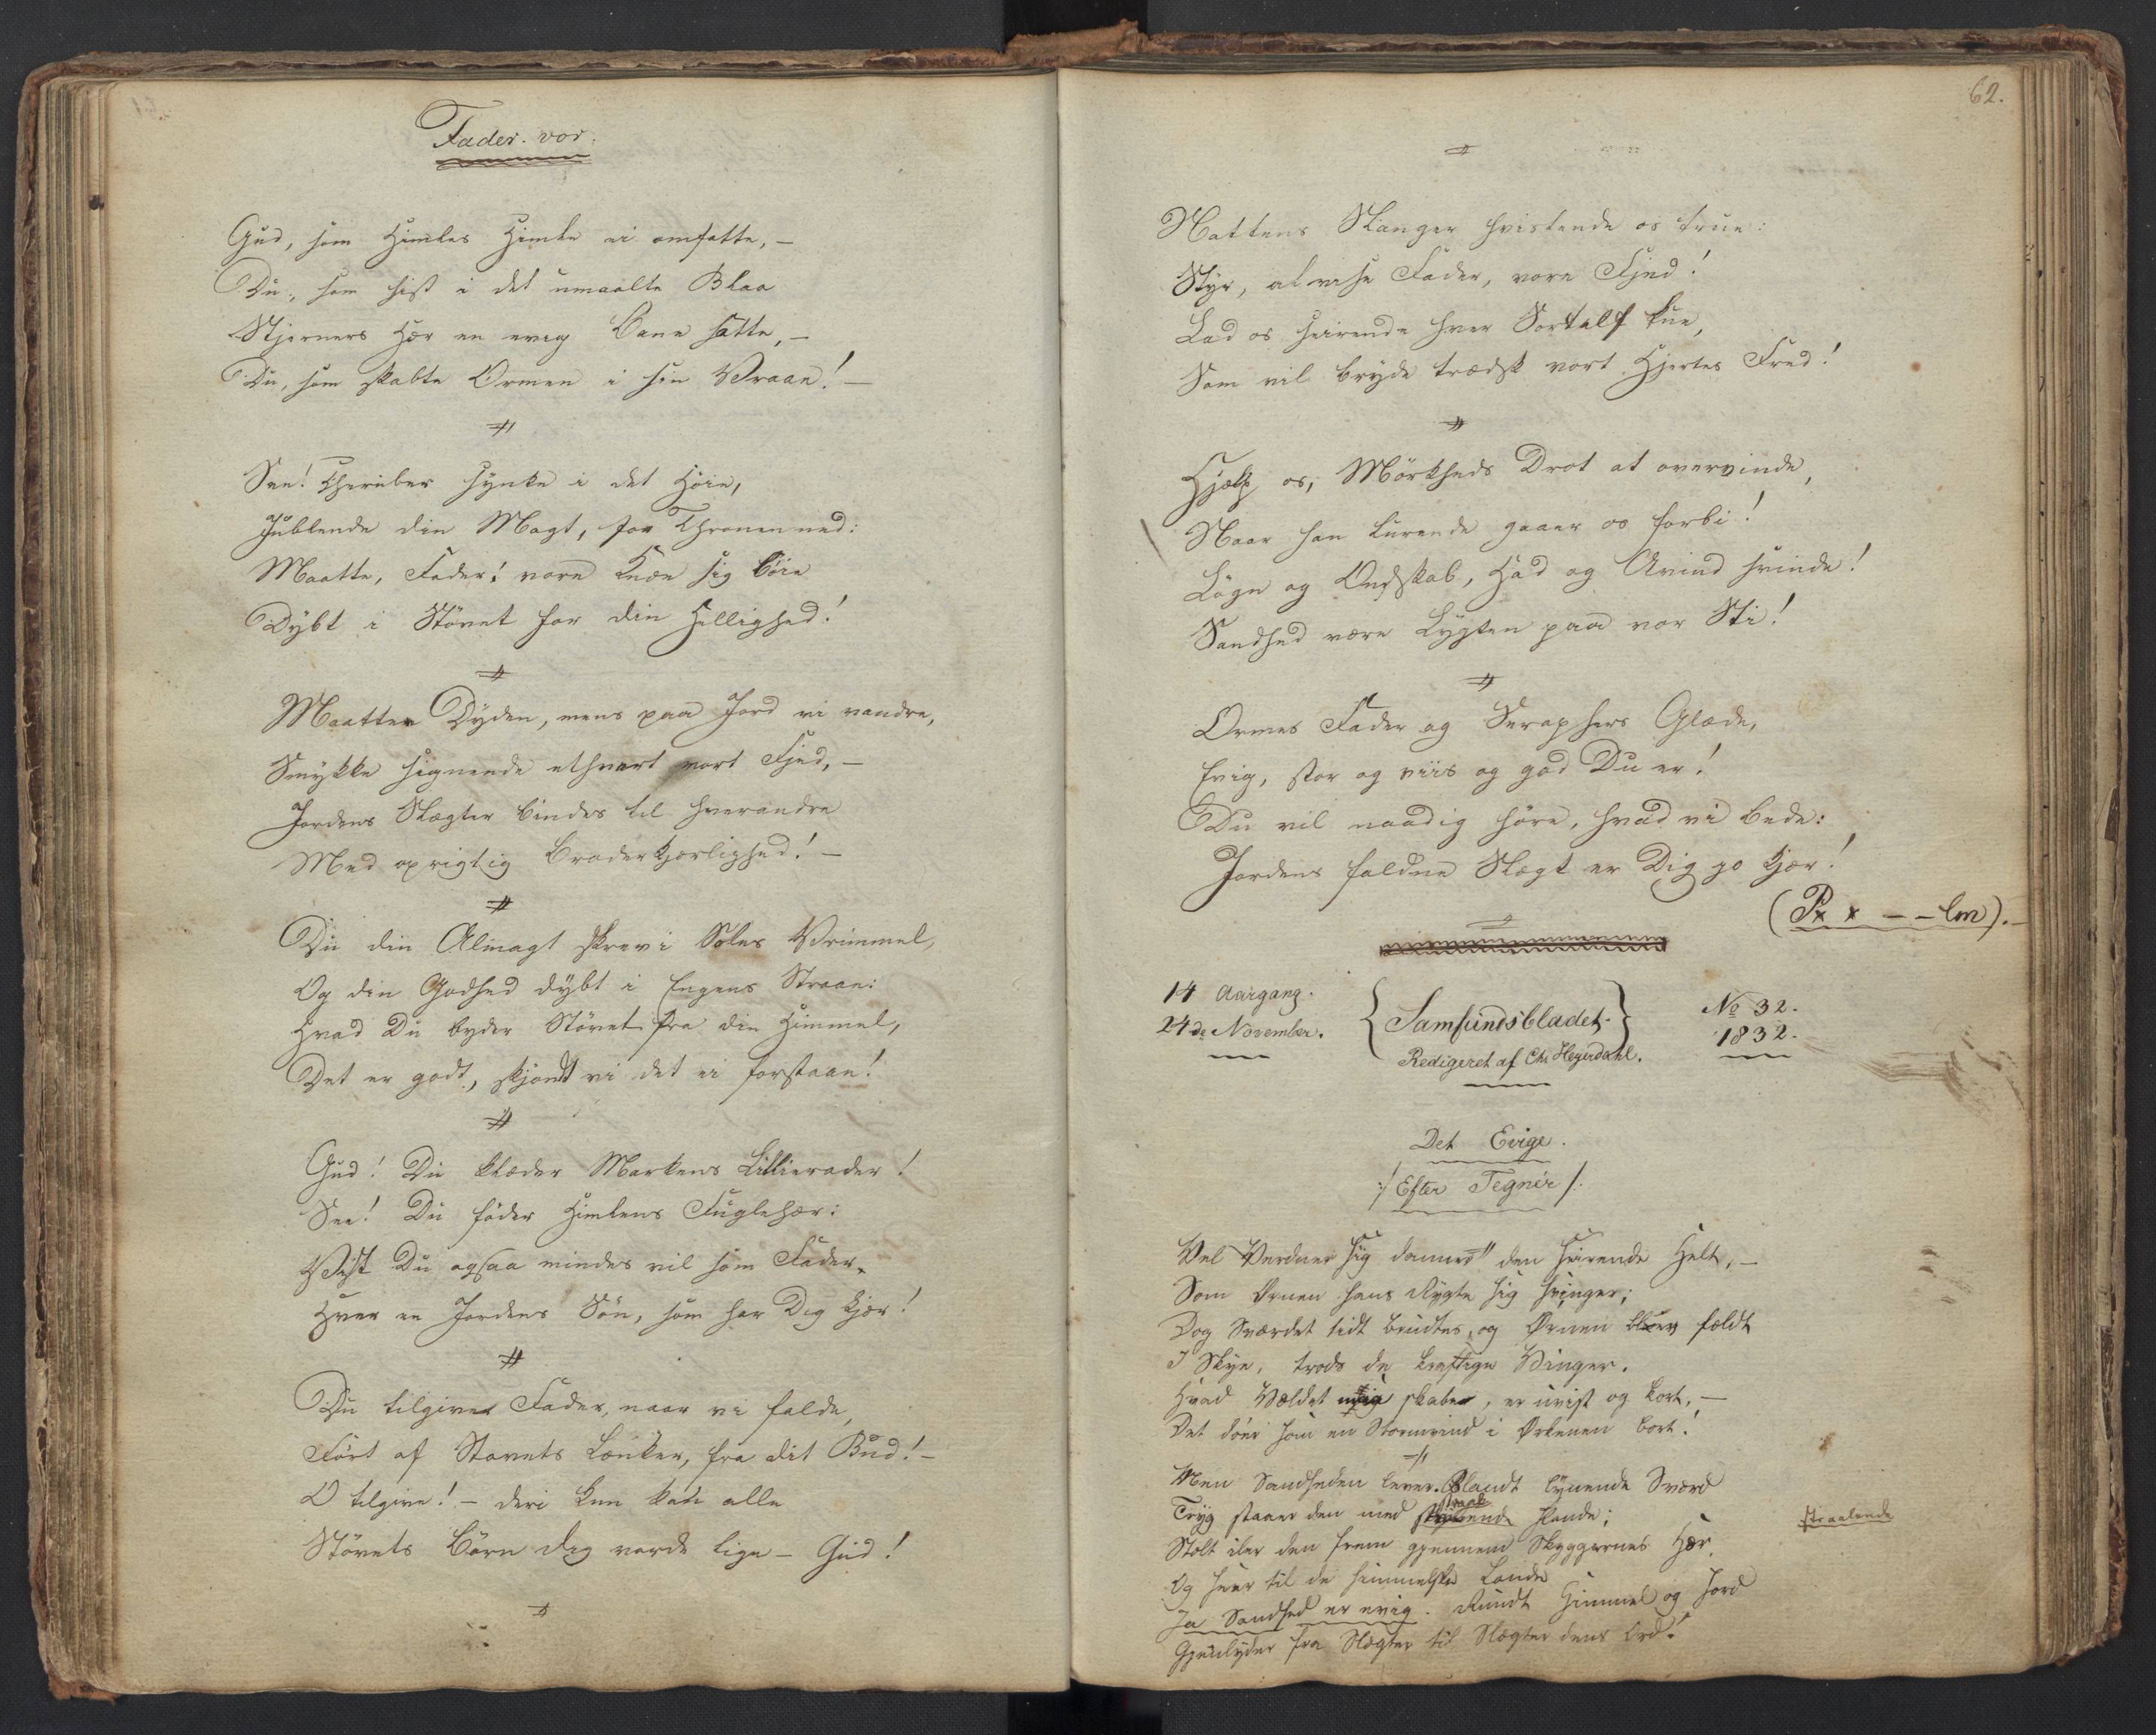 Fader vor.
Gud, som Himles Himle ei omfatte, –
Du, som hist i det umaalte Blaa
Stjerners Hær en evig Bane satte, –
Du, som skabte Ormen i sin Vraae! –
See! Cheruber synke i det Høie,
Jublende din Magt, for Thronen ned:
Maatte, Fader! vore Knæe sig bøie
Dybt i Støvet for din Hellighed!
Maatte Dyden, mens paa Jord vi vandre,
Smykke signende ethvert vort Fjed, –
Jordens Slægter bindes til hverandre
Med oprigtig Broderkjærlighed! –
Du din Almagt skrev i Soles Vrimmel,
Og din Godhed dybt i Engens Straae:
Hvad Du byder Støvet fra din Himmel,
Det er godt, skjøndt vi det ei forstaae!
Gud! Du klæder Markens Lillierader!
See! Du føder Himlens Fuglehær:
Vist Du ogsaa mindes vil som Fader
Hver en Jordens Søn, som har Dig kjær!
Du tilgiver Fader, naar vi falde,
Ført af Støvets Lænker, fra dit Bud! –
O tilgive! – deri kun kan alle
Støvets Børn dig vorde lige – Gud!
62.
Nattens Slanger hvislende os true:
Styr, alvise Fader, vore Fjed!
Lad os seirende hver Sortalf kue,
Som vil bryde trædsk vort Hjertes Fred!
Hjælp os, Mörkheds Drot at overvinde,
Naar han lurende gaaer os forbi!
Løgn og Ondskab, Had og Avind svinde!
Sandhed være Lygten paa vor Sti!
Ormes Fader og Seraphers Glæde,
Evig, stor og viis og god Du er!
Du vil naadig höre, hvad vi bede:
Jordens faldne Slægt er Dig jo kjær!
(P x x – – lm). –
14 Aargang.
24de November.
{Samfundsbladet.}
Redigeret af Chr Heyerdahl.
No 32.
1832.
Det Evige.
:/ Efter Tegnér /:
Vel Verdner sig danner den seirende Helt, –
Som Ørnen hans Rygte sig svinger;
Dog Sværdet tidt brudtes, og Ørnen blev fældt
I Skye, trods de kraftige Vinger.
Hvad Vældet skaber, er uvist og kort, –
Det döer som en Stormvind i Ørkenen bort!
Men Sandheden lever. Blandt lynende Sværd
Tryg staaer den med straalende Pande;
straalende
Stolt iler den frem gjennem Skyggernes Hær,
Og seer til de himmelske Lande
Ja Sandhed er evig. Rundt Himmel og Jord
Gjenlyder fra Slægter til Slægter dens Ord!